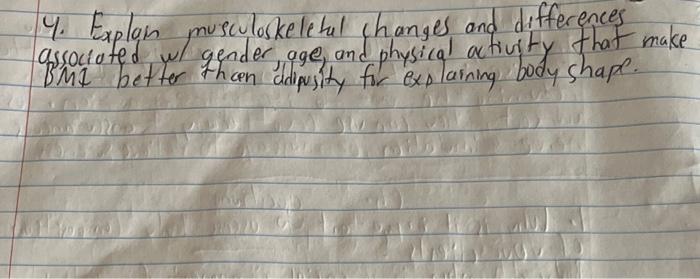 4. Explan musculoskeletal changes and differences
associated w/ gender, age, and physical activity that make
BMI better then adiposity for explaining body shape.